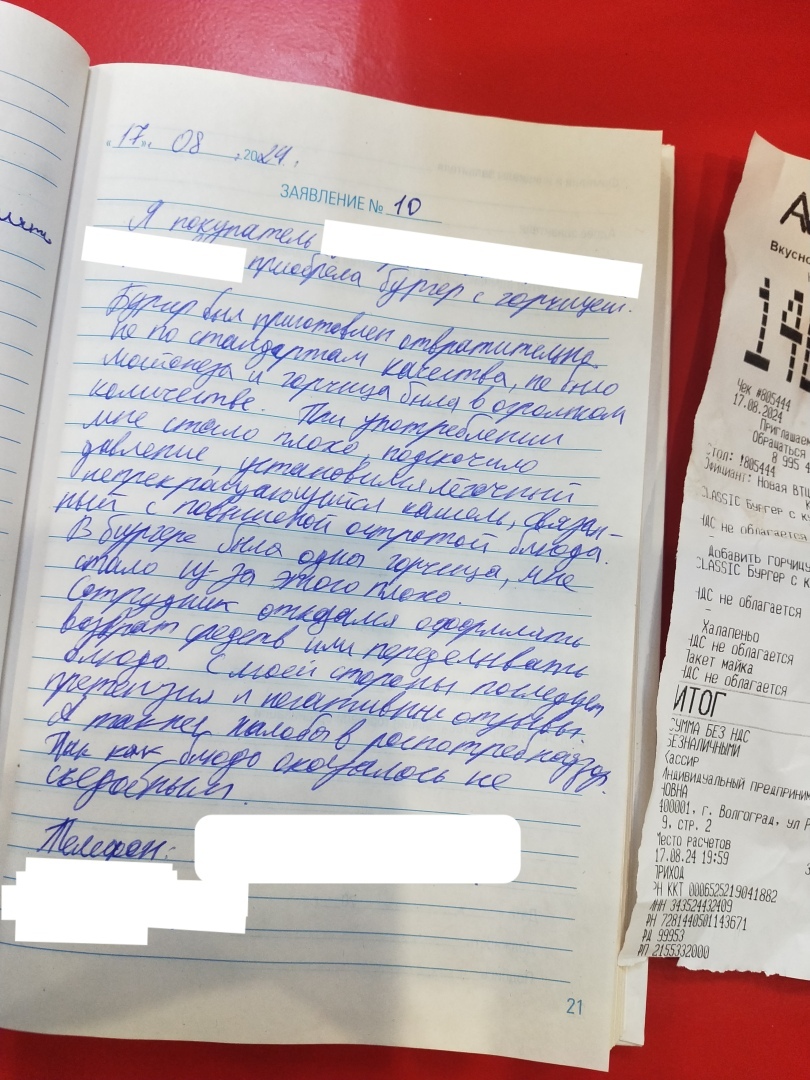 "17" 08 2024.
ЗАЯВЛЕНИЕ № 10
Я покупатель
приобрела бургер с горчицей.
Бургер был приготовлен отвратительно
не по стандартам качества, не было
майонеза и горчица была в огромном
количестве. При употреблении
мне стало плохо, подскочило
давление, установился легочный
непрекращающийся кашель, связан-
ный с повышеной остротой блюда.
В бургере была одна горчица, мне
стало из за этого плохо.
Сотрудник отказался оформлять
возврат средств или переделывать
блюдо. С моей стороны последует
претензия и негативные отзывы.
А также жалобы в роспотребнадзор.
Так как блюдо оказалось не
съедобным.
Телефон:
21
Вкусно
Чек #805444
17.08.2024
Приглашаем
Обращаться
8 995 4
Стол: !805444
Официант: Новая ВТШ
CLASSIC Бургер с к
НДС не облагается
Добавить горчицу
CLASSIC Бургер с к
НДС не облагается
Халапеньо
НДС не облагается
Пакет майка
НДС не облагается
ИТОГ
СУММА БЕЗ НДС
БЕЗНАЛИЧНЫМИ
Кассир
Индивидуальный предприним
НОВНА
400001, г. Волгоград, ул Р
9, стр. 2
Место расчетов
17.08.24 19:59
ПРИХОД
РН ККТ 0006525219041882
ИНН 343524432409
РН 7281440501143671
ФД 99953
ФП 2155332000